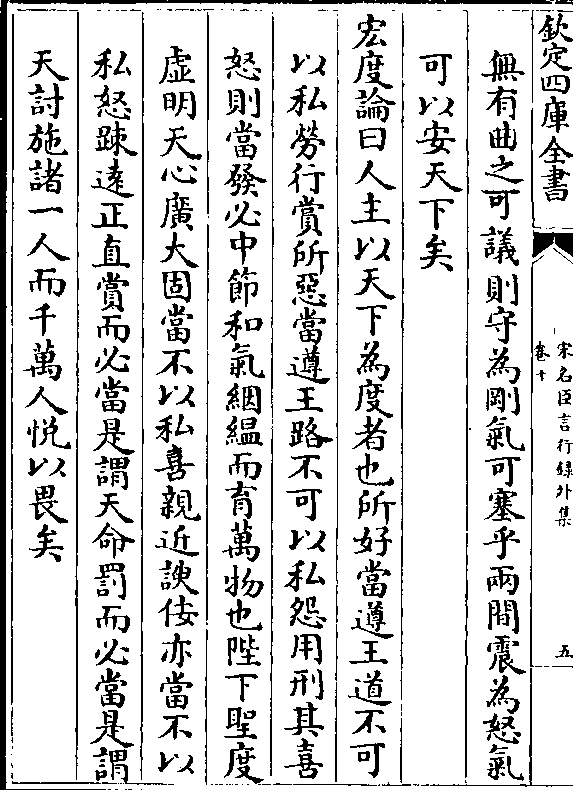 欽定四庫全書
宋名臣言行錄外集
卷十
五
無有曲之可議則守為剛氣可塞乎兩間震為怒氣
可以安天下矣
宏度論曰人主以天下為度者也所好當遵王道不可
以私勞行賞所惡當遵王路不可以私怨用刑其喜
怒則當發必中節和氣絪緼而育萬物也陛下聖度
虛明天心廣大固當不以私喜親近諛佞亦當不以
私怒踈逺正直賞而必當是謂天命罰而必當是謂
天討施諸一人而千萬人悅以畏矣